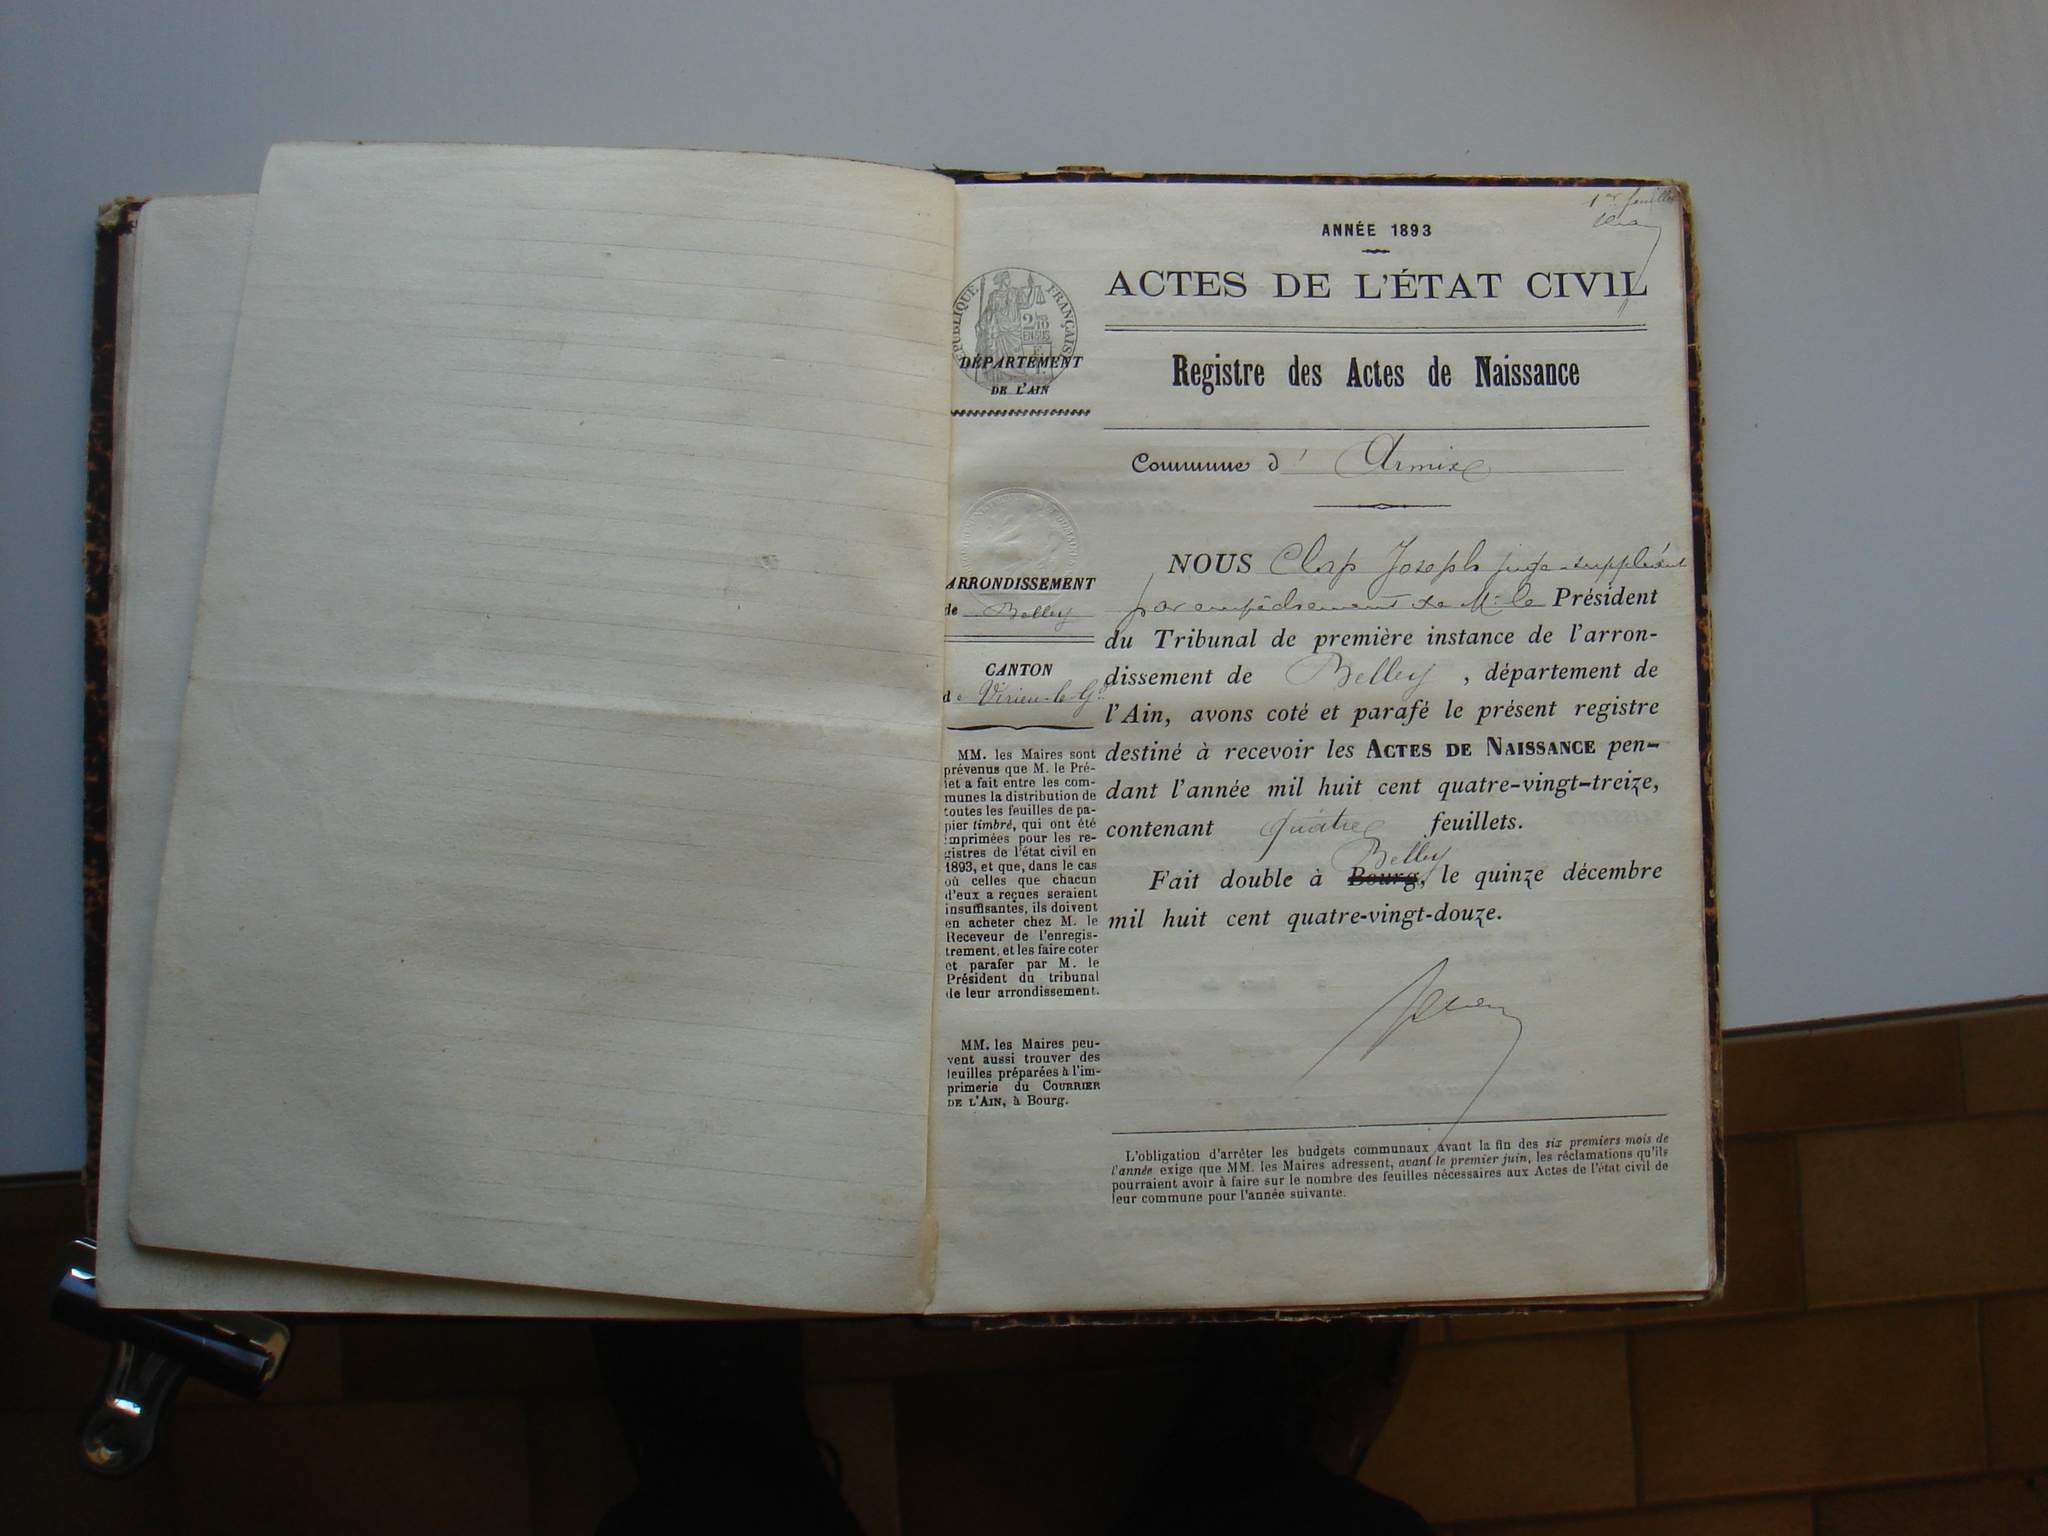 1er feuillet
ANNÉE 1893
ACTES DE L'ÉTAT CIVIL
Registre des Actes de Naissance
Commune d' Armix
RÉPUBLIQUE FRANÇAISE
2/10
EN SUS
DÉPARTEMENT
DE L'AIN
ARRONDISSEMENT
de Belley
CANTON
de Virieu-le-Gd
MM. les Maires sont
prévenus que M. le Pré-
fet a fait entre les com-
munes la distribution de
toutes les feuilles de pa-
pier timbré, qui ont été
imprimées pour les re-
gistres de l'état civil en
1893, et que, dans le cas
où celles que chacun
d'eux a reçues seraient
insuffisantes, ils doivent
en acheter chez M. le
Receveur de l'enregis-
trement, et les faire coter
et parafer par M. le
Président du tribunal
de leur arrondissement.
MM. les Maires peu-
vent aussi trouver des
feuilles préparées à l'im-
primerie du COURRIER
DE L'AIN, à Bourg.
NOUS Clap Joseph juge-suppléant
par empêchement de M. le Président
du Tribunal de première instance de l'arron-
dissement de Belley, département de
l'Ain, avons coté et parafé le présent registre
destiné à recevoir les ACTES DE NAISSANCE pen-
dant l'année mil huit cent quatre-vingt-treize,
contenant quatre feuillets.
Belley
Fait double à Bourg, le quinze décembre
mil huit cent quatre-vingt-douze.
L'obligation d'arrêter les budgets communaux avant la fin des six premiers mois de
l'année exige que MM. les Maires adressent, avant le premier juin, les réclamations qu'ils
pourraient avoir à faire sur le nombre des feuilles nécessaires aux Actes de l'état civil de
leur commune pour l'année suivante.